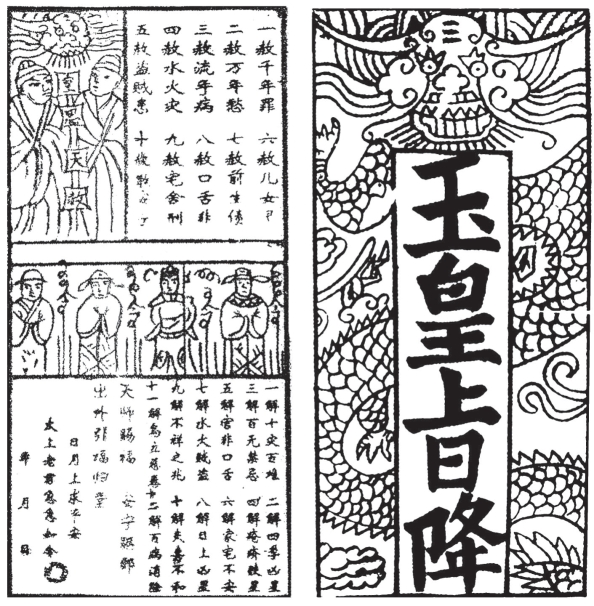 皇恩天赦
一赦千年罪 六赦儿女
二赦万年愁 七赦前生债
三赦流年病 八赦口舌非
四赦水火灾 九赦宅舍刑
五赦盗贼患 十
一解十灾百难 二解四季凶星
三解百无禁忌 四解 星
五解官非口舌 六解家宅不安
七解水火贼盗 八解日上凶星
九解不祥之兆 十解夫妻不和
十一解 十二解百病消除
天师赐福
出外
日月上求平安
太上老君急急如令
年 月 日
玉皇上日降